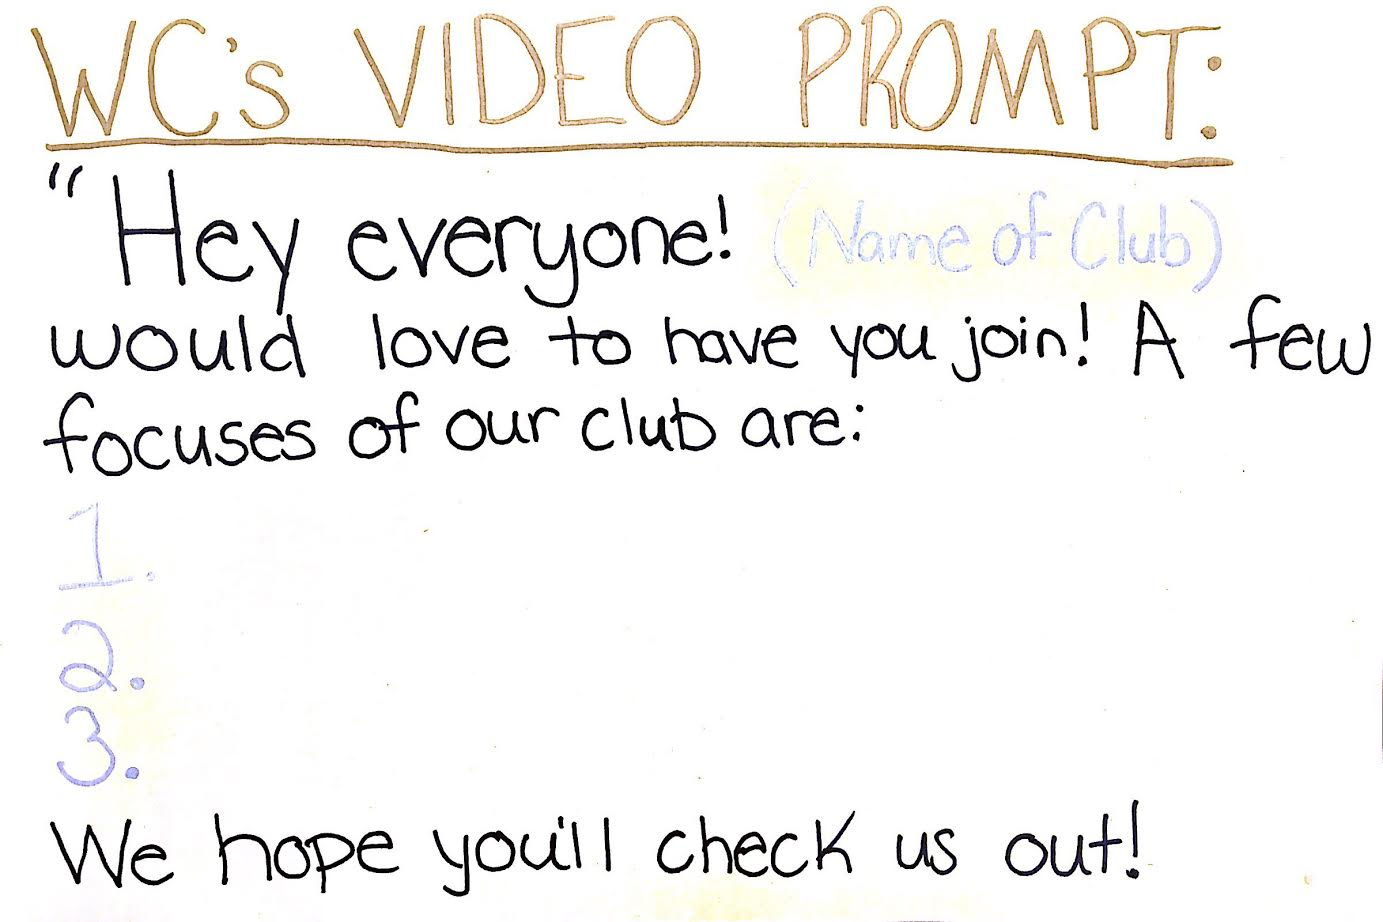 WC's VIDEO PROMPT:
"Hey everyone! (Name of Club)
would love to have you join! A few
focuses of our club are:
1.
2.
3.
We hope you'll check us out!